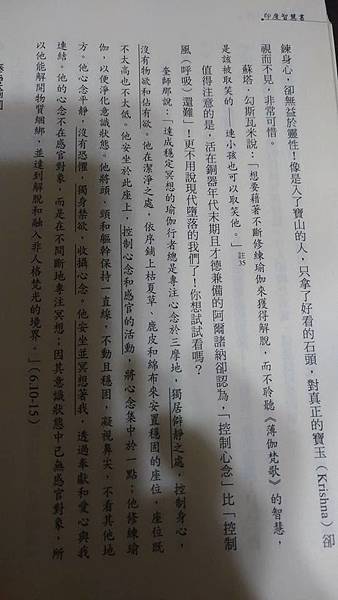 印度智慧書
鍊身心，卻無益於靈性！像是入了寶山的人，只拿了好看的石頭，對真正的寶玉（Krishna）卻
視而不見，非常可惜。
蘇塔．勾斯瓦米說：「想要藉著不斷修練瑜伽來獲得解脫，而不聆聽《薄伽梵歌》的智慧，
是該被取笑的——連小孩也可以取笑他。」註35
值得注意的是，活在銅器年代末期且才德兼備的阿爾諸納卻認為，「控制心念」比「控制
風（呼吸）還難」！更不用說現代墮落的我們了！你想試試看嗎？
奎師那說：「達成穩定冥想的瑜伽行者總是專注心念於三摩地，獨居僻靜之處，控制身心，
沒有物欲和佔有欲。他在潔淨之處，依序鋪上枯夏草、鹿皮和綿布來安置穩固的座位，座位既
不太高也不太低。他安坐於此座上，控制心念和感官的活動，將心念集中於一點；他修練瑜
伽，以使淨化意識狀態。他將頭、頸和軀幹保持一直線，不動且穩固，凝視鼻尖，不看其他地
方。他心念平靜，沒有恐懼，獨身禁欲，收攝心念，他安坐並冥想著我，透過奉獻和愛心與我
連結。他的心念不在感官對象，而是在不間斷地專注冥想；因其意識狀態中已無感官對象，所
以他能解開物質綑綁，並達到解脫和融入非人格梵光的境界。」（6.10-15）